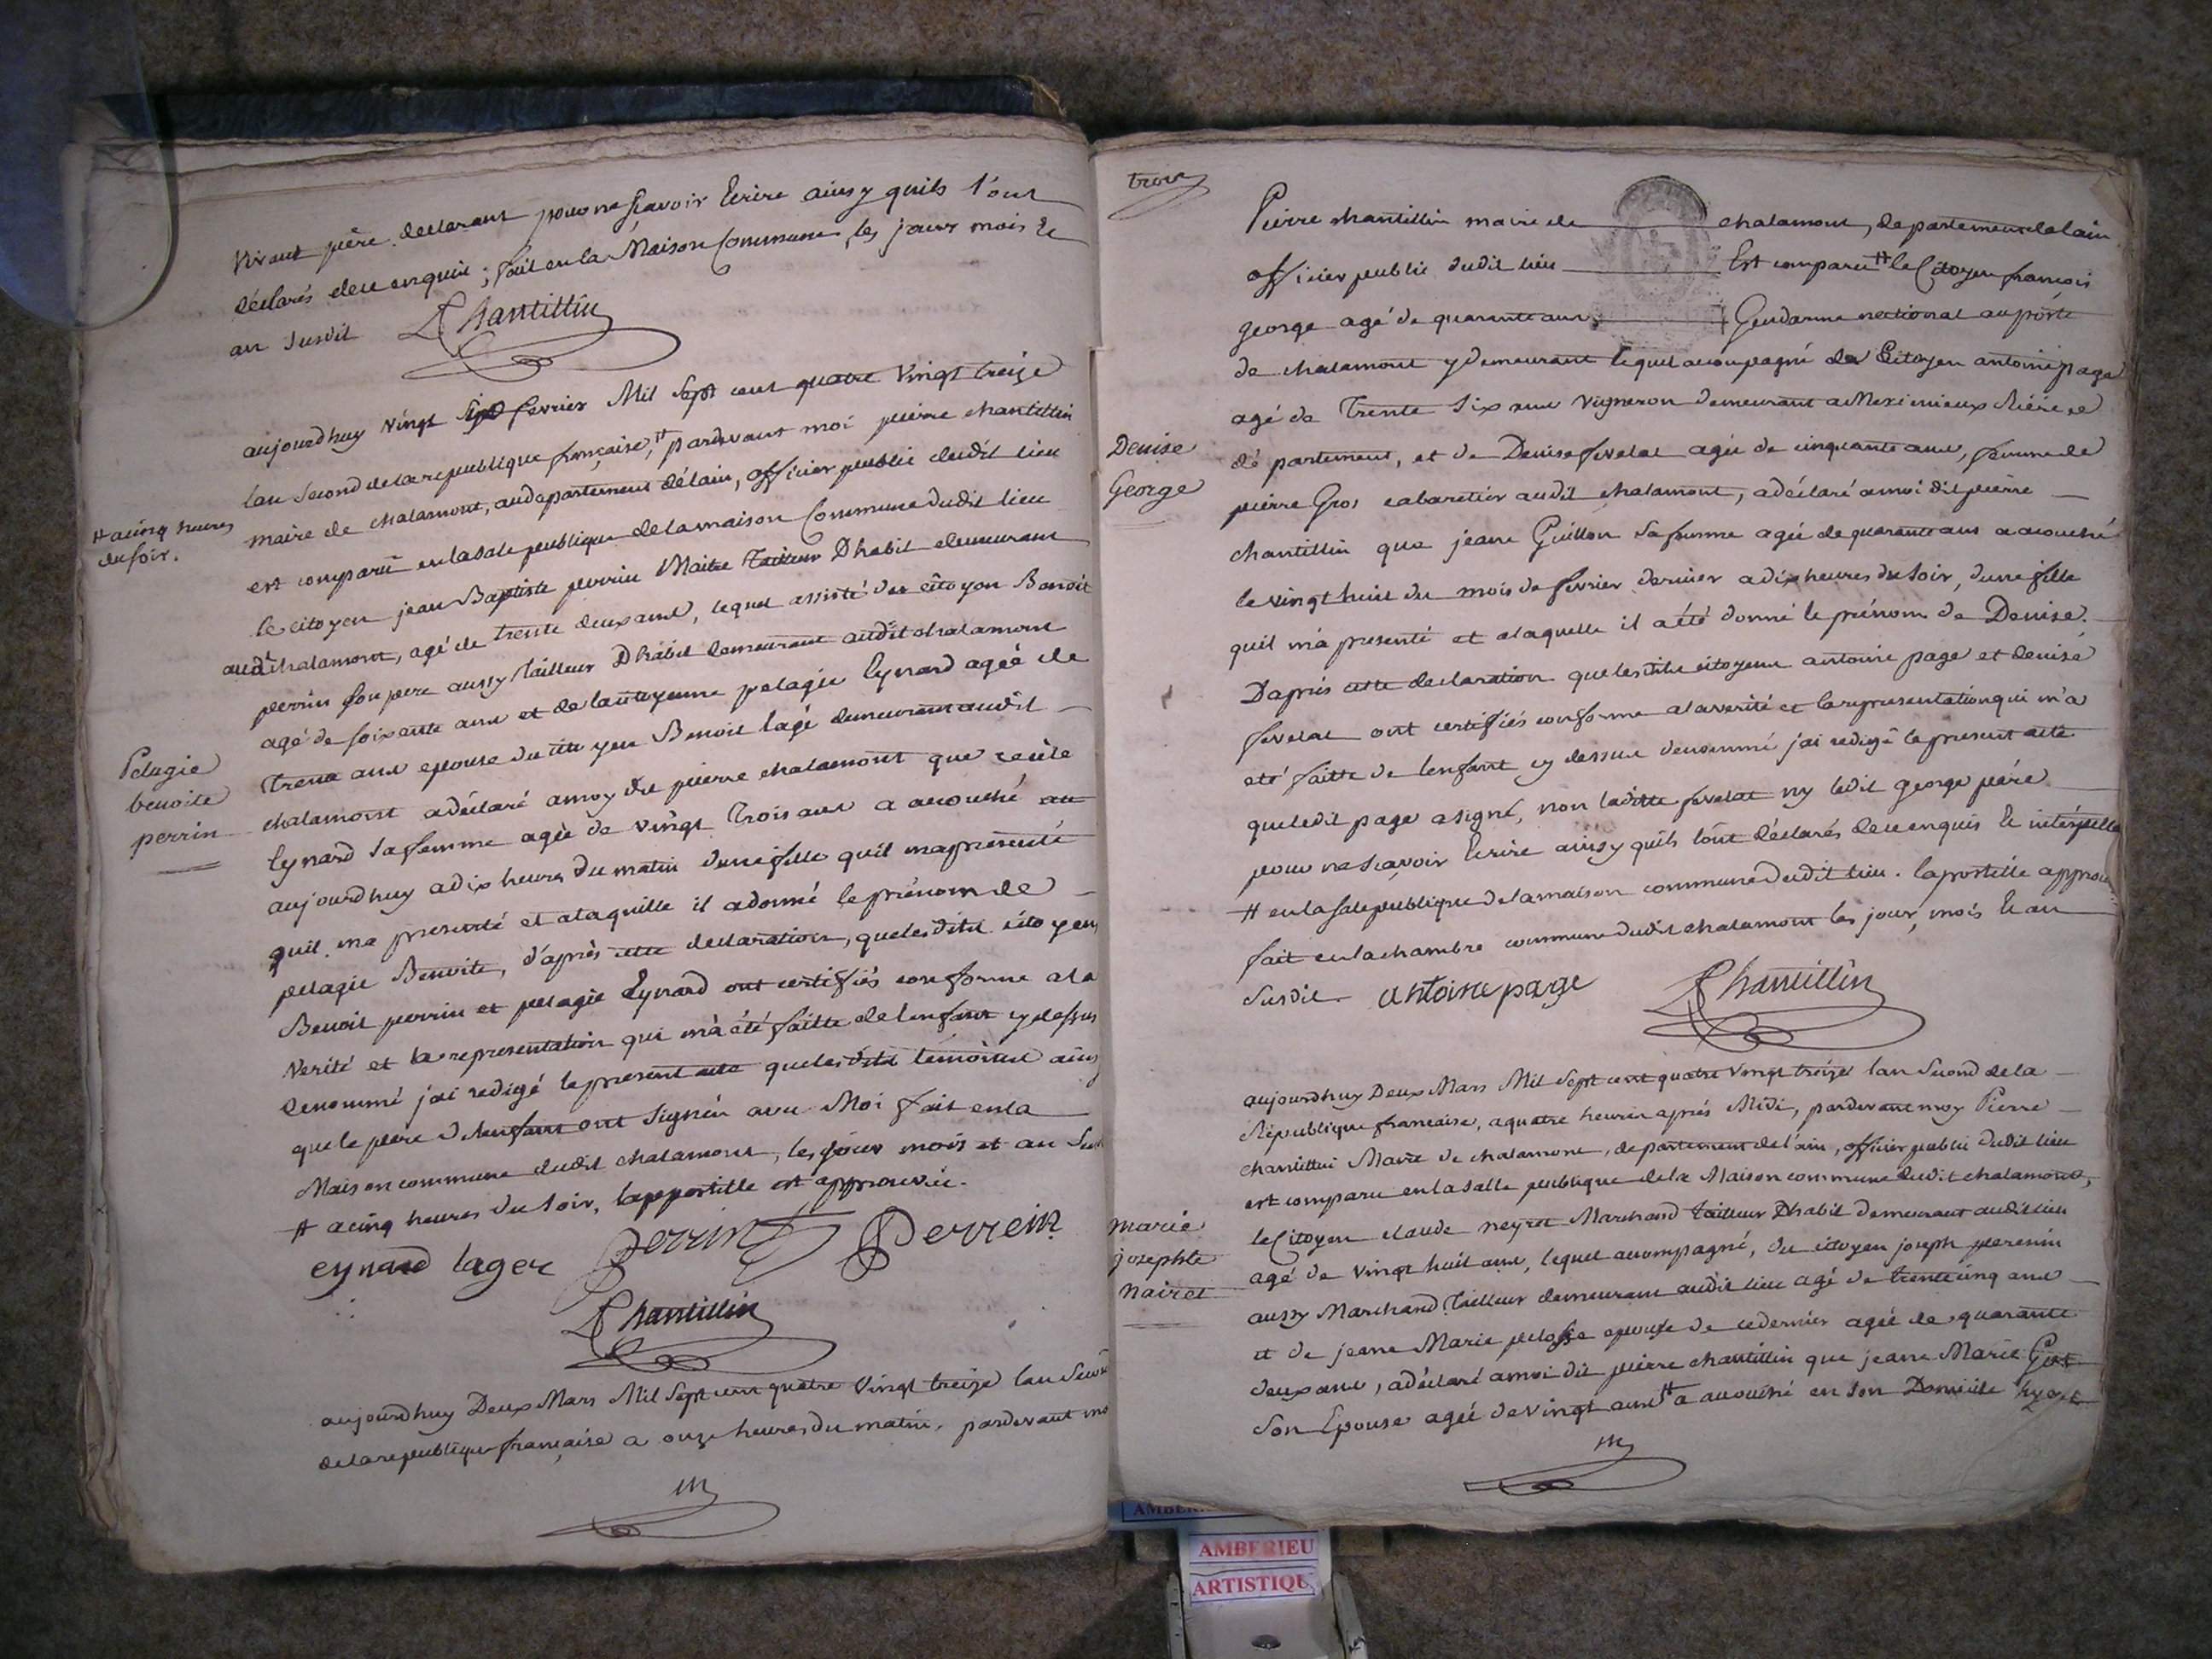 vivant père declarant pour ne sçavoir Ecrire ainsy quils l'ont
déclarés de ce enquis ; fait en la Maison Commune, les jours mois Et
an susdit
PChantillin
aujourdhuy vingt sept fevrier Mil sept cent quatre vingt treize
lan second de la republique française, # pardevant moi pierre chantillin
maire de chalamont, au departement delain, officier public dudit lieu
# a cinq heures
du soir.
est comparû en la sale publique de la maison Commune dudit lieu
le citoyen jean Baptiste perrin Maitre Tailleur Dhabit demeurant
audt chalamont, agé de trente deux ans, lequel assisté du citoyen Benoit
perrin son pere aussy Tailleur Dhabit demeurant audit chalamont
agé de soixante ans et de la citoyenne pelagie Eynard agée de
Pelagie
benoite
perrin
trente ans epouse du citoyen Benoit lagé demeurant audit
chalamont a déclaré a moy dit pierre chalamont que cecile
Eynard sa femme agée de vingt trois ans a acouché
aujourdhuy a dix heures du matin d'une fille quil ma presenté
quil ma presenté et a laquelle il a donné le prénom de
pelagie Benoite, d'après cette declaration, que lesdits citoyens
Benoit perrin et pelagie Eynard ont certifiés conforme a la
verité et la representation qui m'a été faitte de lenfant cy dessus
denommé j'ai redigé le present acte que lesdits témoins ainsy
que le père de lenfant ont signés avec Moi fait en la
Maison commune dudit chalamont, les jour mois et an
# a cinq heures du soir, lapportille est approuvée.
eynard lager perrin Perrein
PChantillin
aujourdhuy Deux Mars Mil sept cent quatre vingt treize lan
de la republique française a onze heures du matin, pardevant
trois
Pierre chantillin maire de chalamont, departement de lain
officier public dudit lieu Est comparu # le Citoyen françois
george agé de quarante ans, Gendarme national au poste
de chalamont y demeurant lequel acompagné du Citoyen antoine page
agé de Trente six ans vigneron demeurant a Meximieux
Denise
George
dé partement, et de Denise fevelat agée de cinquante ans, femme de
pierre Gros cabaretier audit chalamont, a déclaré a moi dit pierre
chantillin que jeane Guillon sa femme agée de quarante ans a acouché
le vingt huit du mois de fevrier dernier a dix heures du soir, dune fille
quil m'a presenté et a laquelle il a été donné le prénom de Denise.
D'après cette declaration que lesdits citoyens antoine page et denise
fevelat ont certifiés conforme a la verité et la representation qui m'a
eté faitte de lenfant cy dessus denommé j'ai redigé le present acte
que ledit page a signé, non laditte fevelat ny ledit george pére
pour ne sçavoir Ecrire ainsy quils lont déclarés de ce enquis Et interpellé
# en la sale publique de la maison commune dudit lieu. lapostille
fait en la chambre commune dudit chalamont les jour, mois Et an
susdit. antoine page PChantillin
aujourdhuy Deux Mars Mil sept cent quatre vingt treize lan second de la
République francaise, a quatre heures aprés Midi, pardevant moy Pierre
chantillin Maire de chalamont, departement de l'ain, officier public dudit lieu
est comparu en la salle publique de la Maison commune dudit chalamont,
marie
josephte
nairet
le Citoyen claude neyret Marchand Tailleur Dhabit demeurant audit lieu
agé de vingt huit ans, lequel accompagné, du citoyen joseph
aussy Marchand Tailleur demeurant audit lieu agé de trente cinq ans
et de jeane Marie pelosse epouse de ce dernier agée de quarante
deux ans, a déclaré a moi dit pierre chantillin que jeane Marie
son Epouse agée de vingt ans # a acouché en son Domicile
AMBERIEU
ARTISTIQU